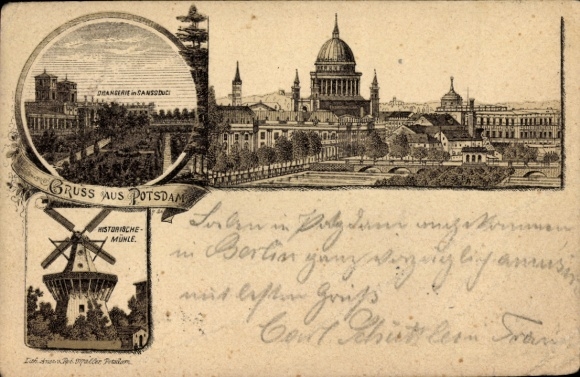 ORANGERIE in SANSSOUCI
GRUSS AUS POTSDAM
HISTORISCHE-
MÜHLE.
Soeben in Potsdam angekommen
in Berlin ganz vorzüglich amüs
mit besten Gruß
Carl
Potsdam.